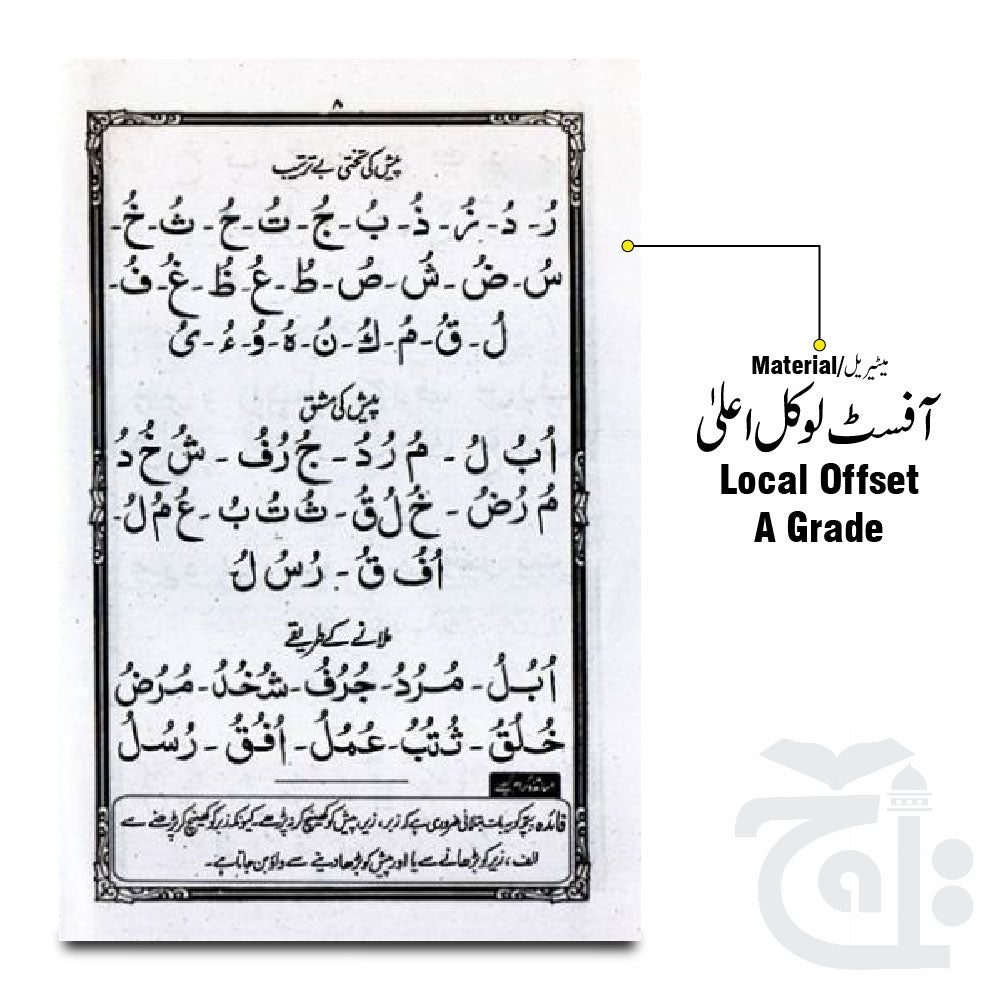 ۸
پیش کی تختی بے ترتیب
رُ - دُ - زُ - ذُ - بُ - جُ - تُ - حُ - ثُ - خُ -
سُ - ضُ - شُ - صُ - طُ - عُ - ظُ - غُ - فُ -
لُ - قُ - مُ - كُ - نُ - هُ - وُ - ءُ - ىُ
پیش کی مشق
اُ بُ لُ - مُ رُ دُ - جُ رُ فُ - شُ خُ دُ
مُ رُ ضُ - خُ لُ قُ - ثُ تُ بُ - عُ مُ لُ -
اُ فُ قُ - رُ سُ لُ
ملانے کے طریقے
اُبُلُ - مُرُدُ - جُرُفُ - شُخُدُ - مُرُضُ
خُلُقُ - ثُتُبُ - عُمُلُ - اُفُقُ - رُسُلُ
اساتذہ کرام کیلئے
فائدہ بچہ کو یہ بات بتلانی ضروری ہے کہ زبر، زیر، پیش کو کھینچ کر نہ پڑھے۔ کیونکہ زبر کو کھینچ کر پڑھنے سے
الف، زیر کو بڑھانے سے یا اور پیش کو بڑھا دینے سے واؤ بن جاتا ہے۔
Material/میٹیریل
آفسٹ لوکل اعلیٰ
Local Offset
A Grade